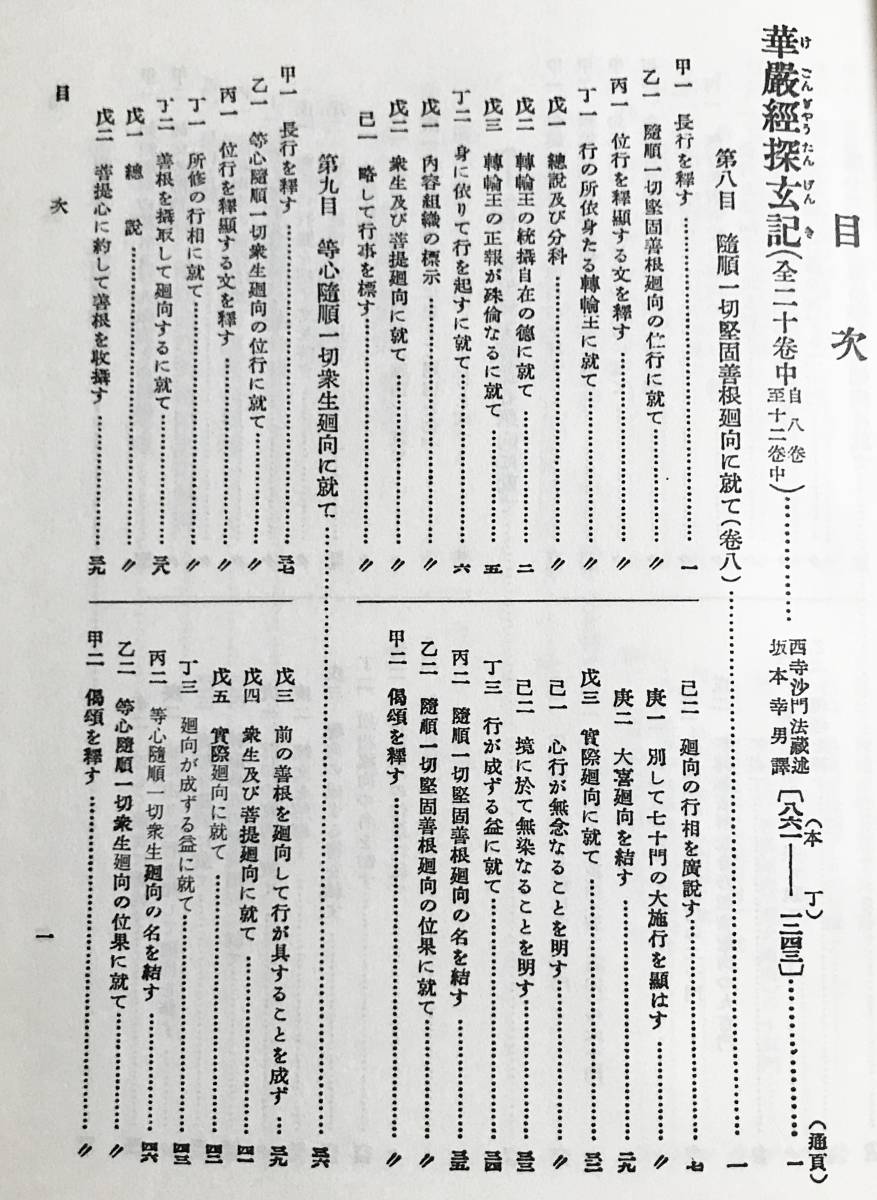 目次
(本丁) (通頁)
華嚴經探玄記(全二十卷中自八卷至十二卷中)………… 西寺沙門法藏述 坂本幸男譯 〔八六一――一二四三〕………… 一
けごんぎやうたんげんき
第八目 隨順一切堅固善根廻向に就て(卷八)………… 一
甲一 長行を釋す………… 一
乙一 隨順一切堅固善根廻向の位行に就て………… 〃
丙一 位行を釋顯する文を釋す………… 〃
丁一 行の所依身たる轉輪王に就て………… 〃
戊一 總說及び分科………… 〃
戊二 轉輪王の統攝自在の德に就て………… 二
戊三 轉輪王の正報が殊倫なるに就て………… 五
丁二 身に依りて行を起すに就て………… 六
戊一 內容組織の標示………… 〃
戊二 衆生及び菩提廻向に就て………… 〃
己一 略して行事を標す………… 〃
己二 廻向の行相を廣說す………… 七
庚一 別して七十門の大施行を顯はす………… 〃
庚二 大寃廻向を結す………… 二九
戊三 實際廻向に就て………… 三二
己一 心行が無念なることを明す………… 〃
己二 境に於て無染なることを明す………… 三三
丁三 行が成ずる益に就て………… 三四
丙二 隨順一切堅固善根廻向の名を結す………… 三五
乙二 隨順一切堅固善根廻向の位果に就て………… 〃
甲二 偈頌を釋す………… 〃
第九目 等心隨順一切衆生廻向に就て………… 三六
甲一 長行を釋す………… 三七
乙一 等心隨順一切衆生廻向の位行に就て………… 〃
丙一 位行を釋顯する文を釋す………… 〃
丁一 所修の行相に就て………… 〃
丁二 善根を攝取して廻向するに就て………… 三八
戊一 總說………… 〃
戊二 菩提心に約して善根を收攝す………… 三九
戊三 前の善根を廻向して行が具することを成ず………… 三九
戊四 衆生及び菩提廻向に就て………… 四一
戊五 實際廻向に就て………… 四三
丁三 廻向が成ずる益に就て………… 四三
丙二 等心隨順一切衆生廻向の名を結す………… 四六
乙二 等心隨順一切衆生廻向の位果に就て………… 〃
甲二 偈頌を釋す………… 〃
目次 一